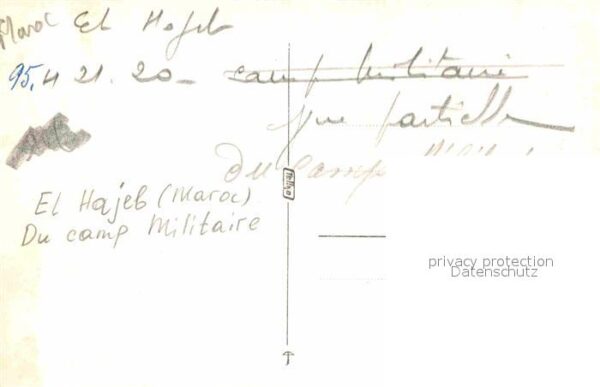 Maroc El Hajeb
95.4 21.20 - camp Militaire
Vue partielle
Du Camp
El Hajeb (Maroc)
Du camp Militaire
privacy protection
Datenschutz